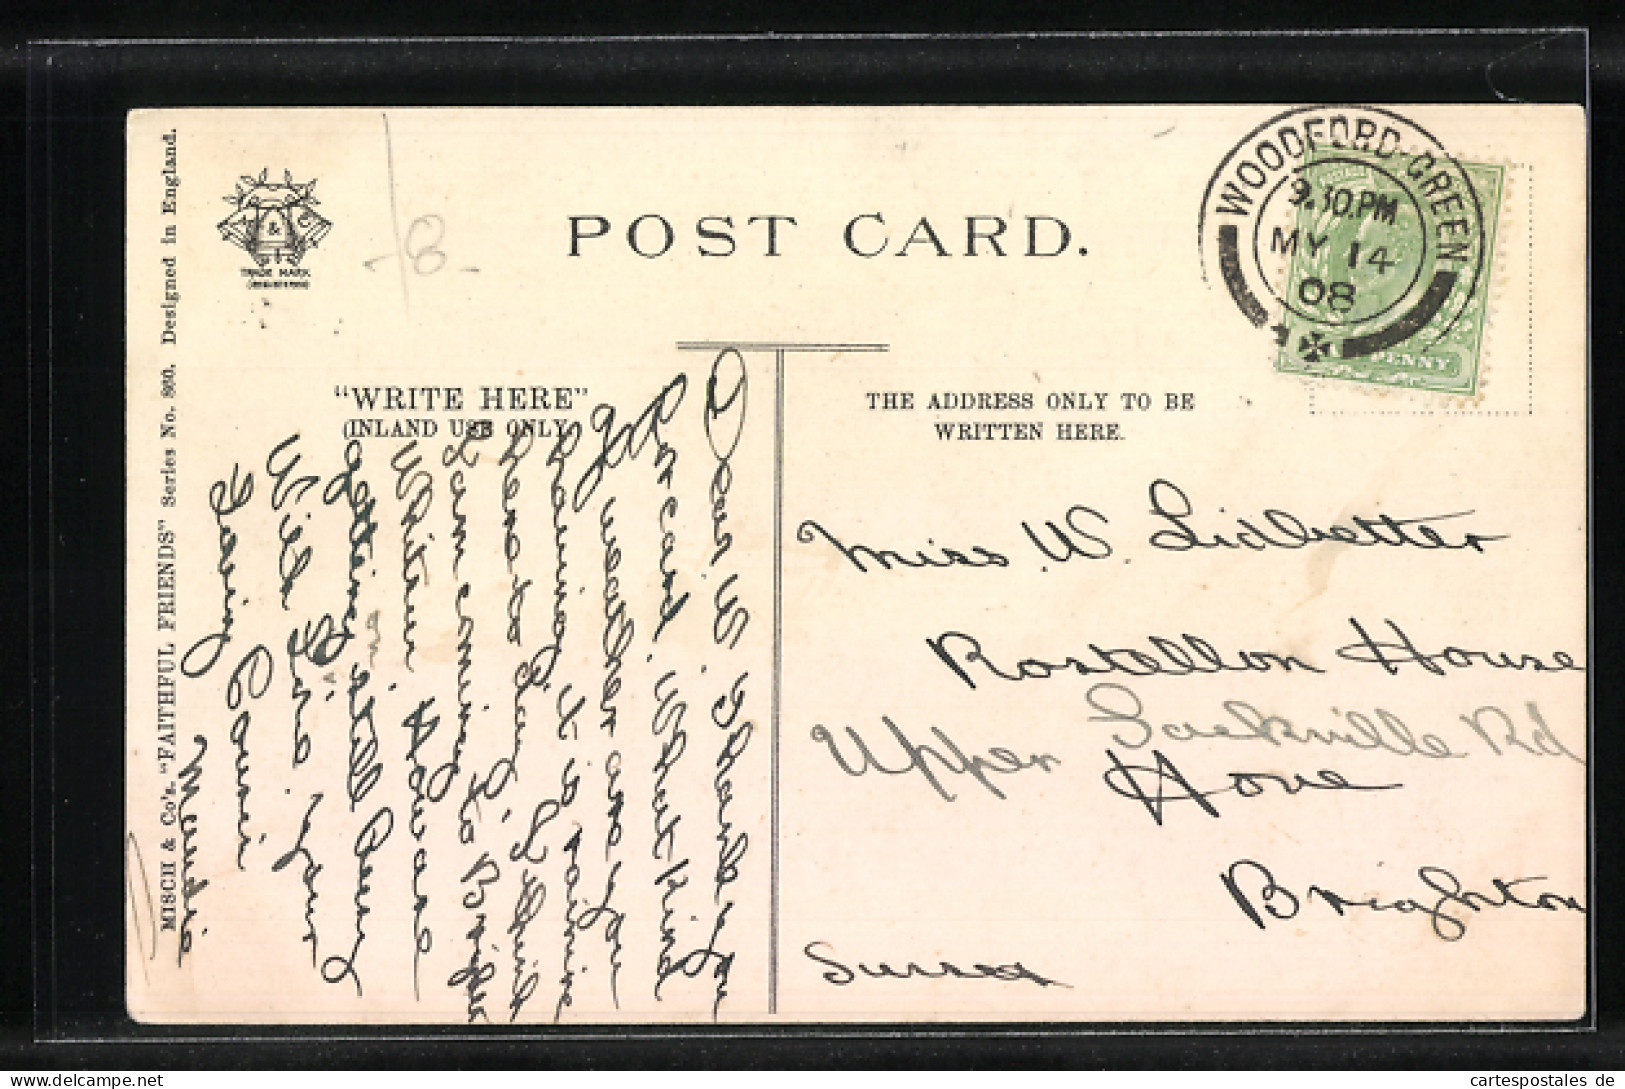 MISCH & Co's. "FAITHFUL FRIENDS" Series No. 820. Designed in England.
TRADE MARK
&
POST CARD.
WOODFORD-GREEN
9.30.PM
MY 14
08
PENNY
"WRITE HERE"
(INLAND USE ONLY)
THE ADDRESS ONLY TO BE
WRITTEN HERE.
Dear W. Thank you
for card. What kind
of weather are you
having, it is raining
here to day, I think
I am coming to Brighton
Whitsun. Howard
getting on still
Will
Loving Cousin
Maudie
Miss W. Lidbetter
Rostellon House
Upper Sackville Rd
Hove
Brighton
Sussex
cartespostales de